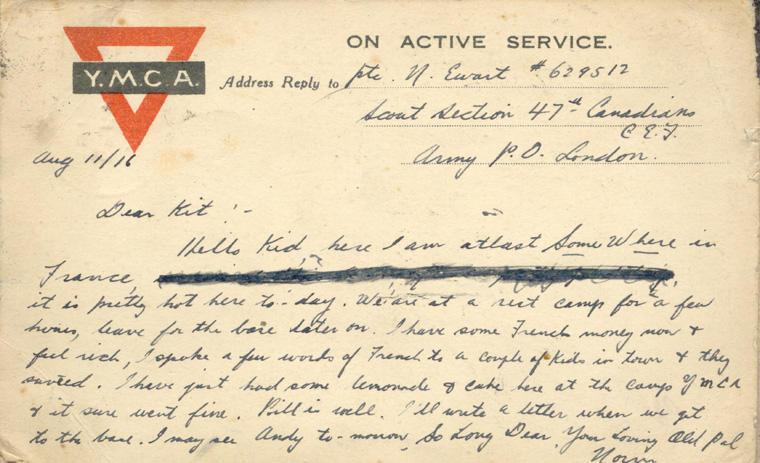 ON ACTIVE SERVICE.
Y.M.C.A.
Address Reply to Pte. N. Ewart # 629512
Scout Section 47th Canadians
C.E.F.
Army P.O. London.
Aug 11/16
Dear Kit :-
Hello Kid, here I am atlast Some Where in
France,
it is pretty hot here to-day. We are at a rest camp for a few
hours, leave for the base later on. I have some French money now &
feel rich, I spoke a few words of French to a couple of Kids in town & they
I have just had some lemonade & cake here at the camp YMCA
& it sure went fine. Bill is well. I'll write a letter when we get
to the base. I may see Andy to-morrow, So Long Dear, Your Loving Old Pal
Norm